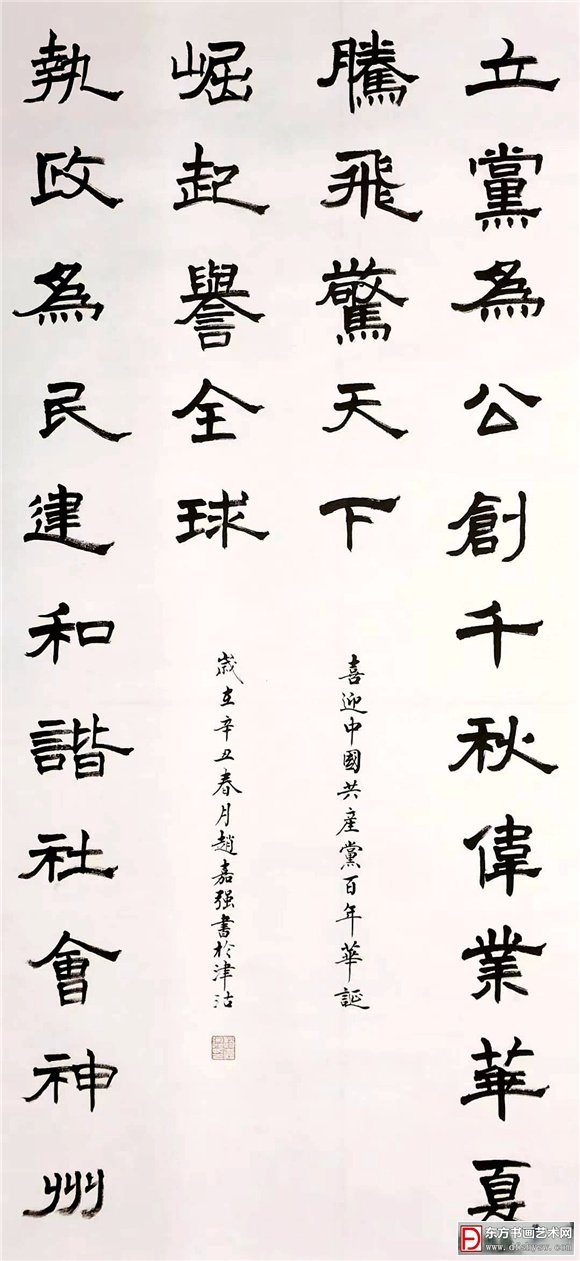 立黨為公創千秋偉業華夏
騰飛驚天下
執政為民建和諧社會神州
崛起譽全球
喜迎中國共産黨百年華誕
歲在辛丑春月趙嘉强書於津沽
东方书画艺术网
www.dfshysw.com